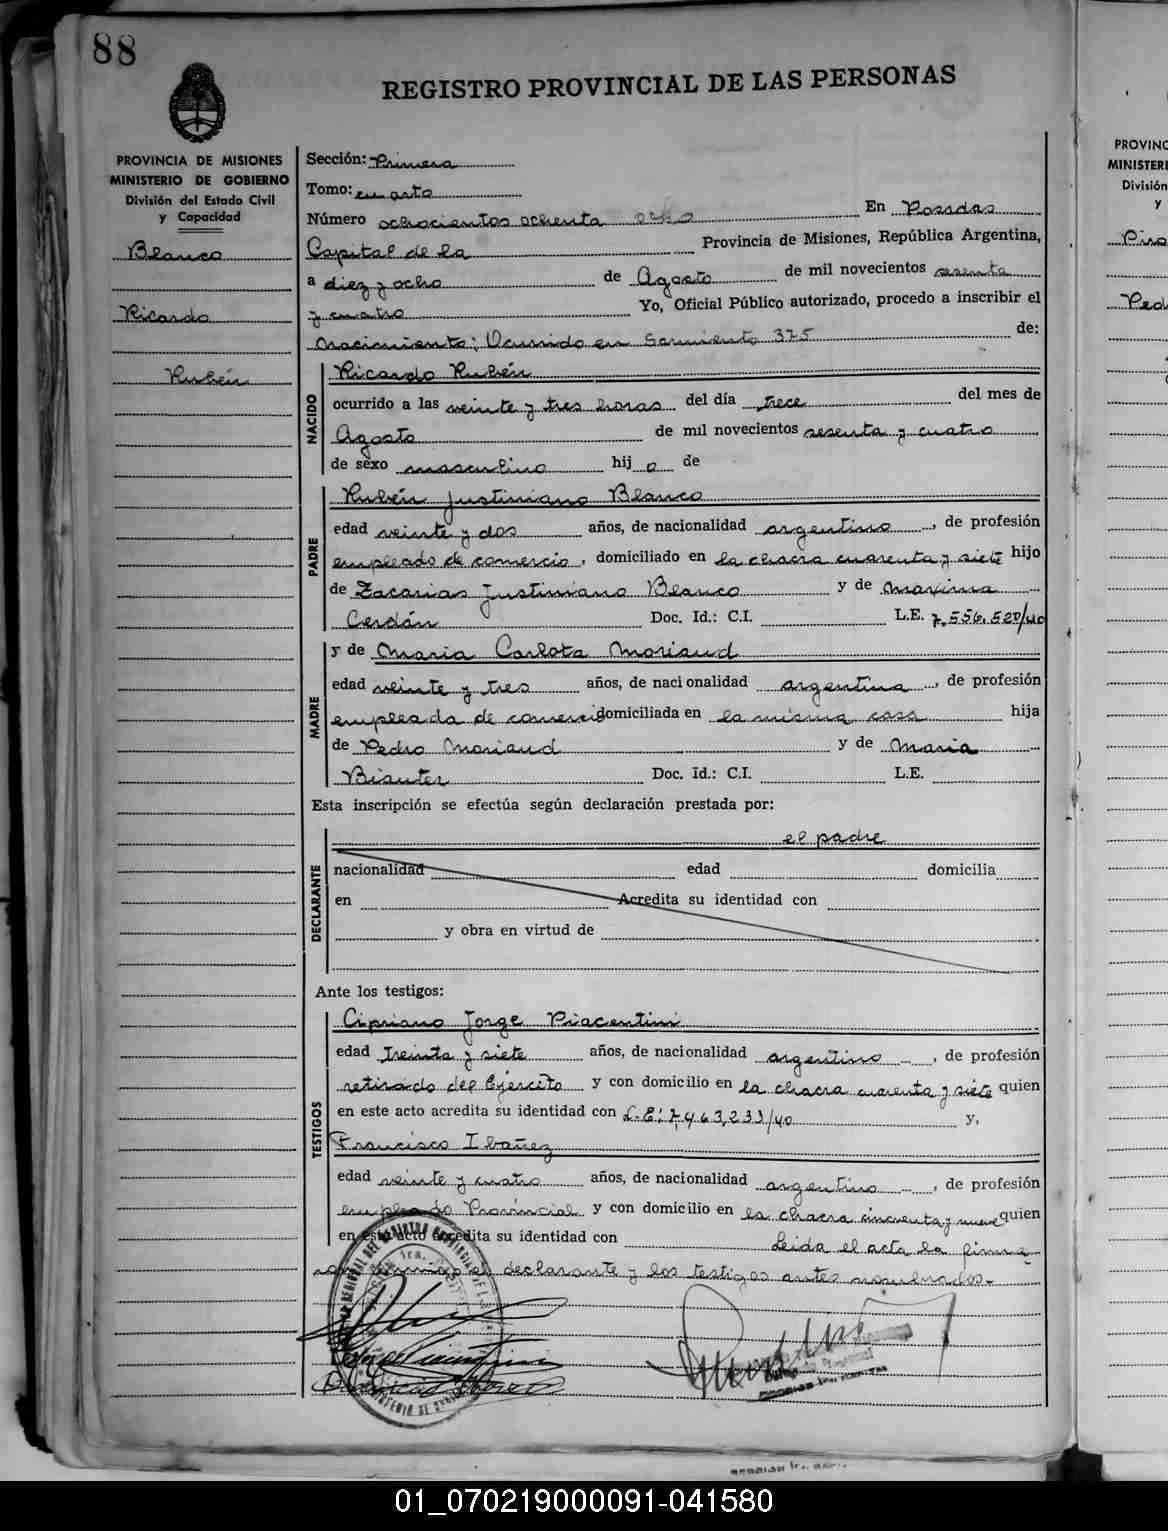 88
REGISTRO PROVINCIAL DE LAS PERSONAS
PROVINCIA DE MISIONES
MINISTERIO DE GOBIERNO
División del Estado Civil
y Capacidad
Blanco
Ricardo
Rubén
Sección: Primera
Tomo: cuarto
Número ochocientos ochenta ocho En Posadas
Capital de la Provincia de Misiones, República Argentina,
a diez y ocho de Agosto de mil novecientos sesenta
y cuatro Yo, Oficial Público autorizado, procedo a inscribir el
nacimiento; Ocurrido en Sarmiento 375 de:
NACIDO
Ricardo Rubén
ocurrido a las veinte y tres horas del día trece del mes de
Agosto de mil novecientos sesenta y cuatro
de sexo masculino hij o de
PADRE
Rubén Justiniano Blanco
edad veinte y dos años, de nacionalidad argentino, de profesión
empleado de comercio, domiciliado en la chacra cuarenta y siete hijo
de Zacarias Justiniano Blanco y de Maxima
Cerdán Doc. Id.: C.I. L.E. 7.556.520/40
MADRE
y de Maria Carlota Moriaud
edad veinte y tres años, de nacionalidad argentina, de profesión
empleada de comercio domiciliada en la misma casa hija
de Pedro Moriaud y de Maria
Bianter Doc. Id.: C.I. L.E.
Esta inscripción se efectúa según declaración prestada por:
DECLARANTE
el padre
nacionalidad edad domicilia
en Acredita su identidad con
y obra en virtud de
Ante los testigos:
TESTIGOS
Cipriano Jorge Piacentini
edad treinta y siete años, de nacionalidad argentino, de profesión
retirado del Ejército y con domicilio en la chacra cuarenta y siete quien
en este acto acredita su identidad con L.E: 7,463,233/40 y,
Francisco Ibañez
edad veinte y cuatro años, de nacionalidad argentino, de profesión
empleado Provincial y con domicilio en la chacra cincuenta y nueve quien
en este acto acredita su identidad con Leida el acta la firma
el declarante y los testigos antes nombrados.
PROVINC
MINISTERI
División
y
01_070219000091-041580